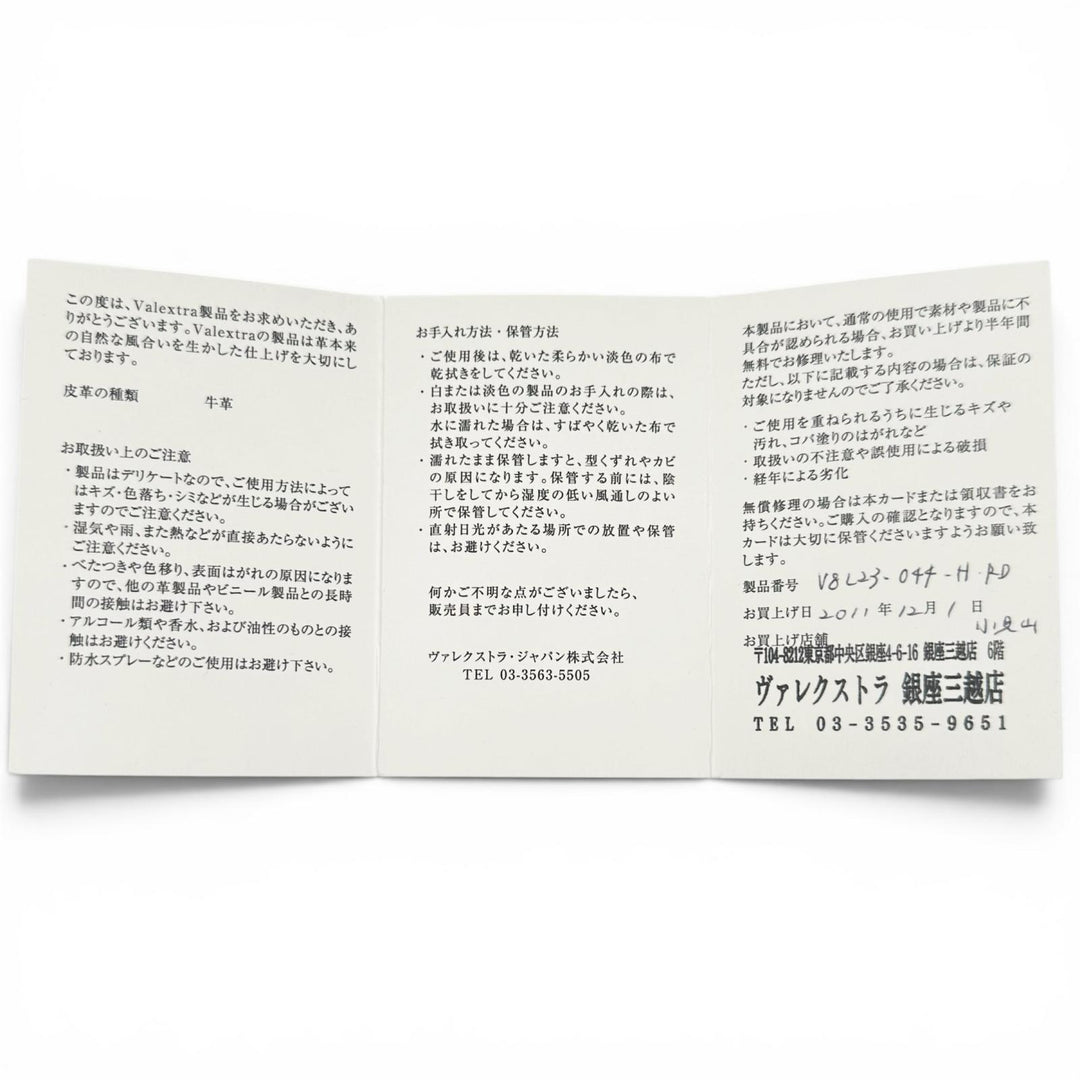 この度は、Valextra製品をお求めいただき、あ
りがとうございます。Valextraの製品は革本来
の自然な風合いを生かした仕上げを大切にし
ております。
皮革の種類 牛革
お取扱い上のご注意
・製品はデリケートなので、ご使用方法によって
はキズ・色落ち・シミなどが生じる場合がござい
ますのでご注意ください。
・湿気や雨、また熱などが直接あたらないように
ご注意ください。
・べたつきや色移り、表面はがれの原因になりま
すので、他の革製品やビニール製品との長時
間の接触はお避け下さい。
・アルコール類や香水、および油性のものとの接
触はお避けください。
・防水スプレーなどのご使用はお避け下さい。
お手入れ方法・保管方法
・ご使用後は、乾いた柔らかい淡色の布で
乾拭きをしてください。
・白または淡色の製品のお手入れの際は、
お取扱いに十分ご注意ください。
水に濡れた場合は、すばやく乾いた布で
拭き取ってください。
・濡れたまま保管しますと、型くずれやカビ
の原因になります。保管する前には、陰
干しをしてから湿度の低い風通しのよい
所で保管してください。
・直射日光があたる場所での放置や保管
は、お避けください。
何かご不明な点がございましたら、
販売員までお申し付けください。
ヴァレクストラ・ジャパン株式会社
TEL 03-3563-5505
本製品において、通常の使用で素材や製品に不
具合が認められる場合、お買い上げより半年間
無料でお修理いたします。
ただし、以下に記載する内容の場合は、保証の
対象になりませんのでご了承ください。
・ご使用を重ねられるうちに生じるキズや
汚れ、コバ塗りのはがれなど
・取扱いの不注意や誤使用による破損
・経年による劣化
無償修理の場合は本カードまたは領収書をお
持ちください。ご購入の確認となりますので、本
カードは大切に保管くださいますようお願い致
します。
製品番号 V8L23-044-H.RD
お買上げ日 2011年12月1日
小見山
お買上げ店舗
〒104-8212東京都中央区銀座4-6-16 銀座三越店 6階
ヴァレクストラ 銀座三越店
TEL 03-3535-9651